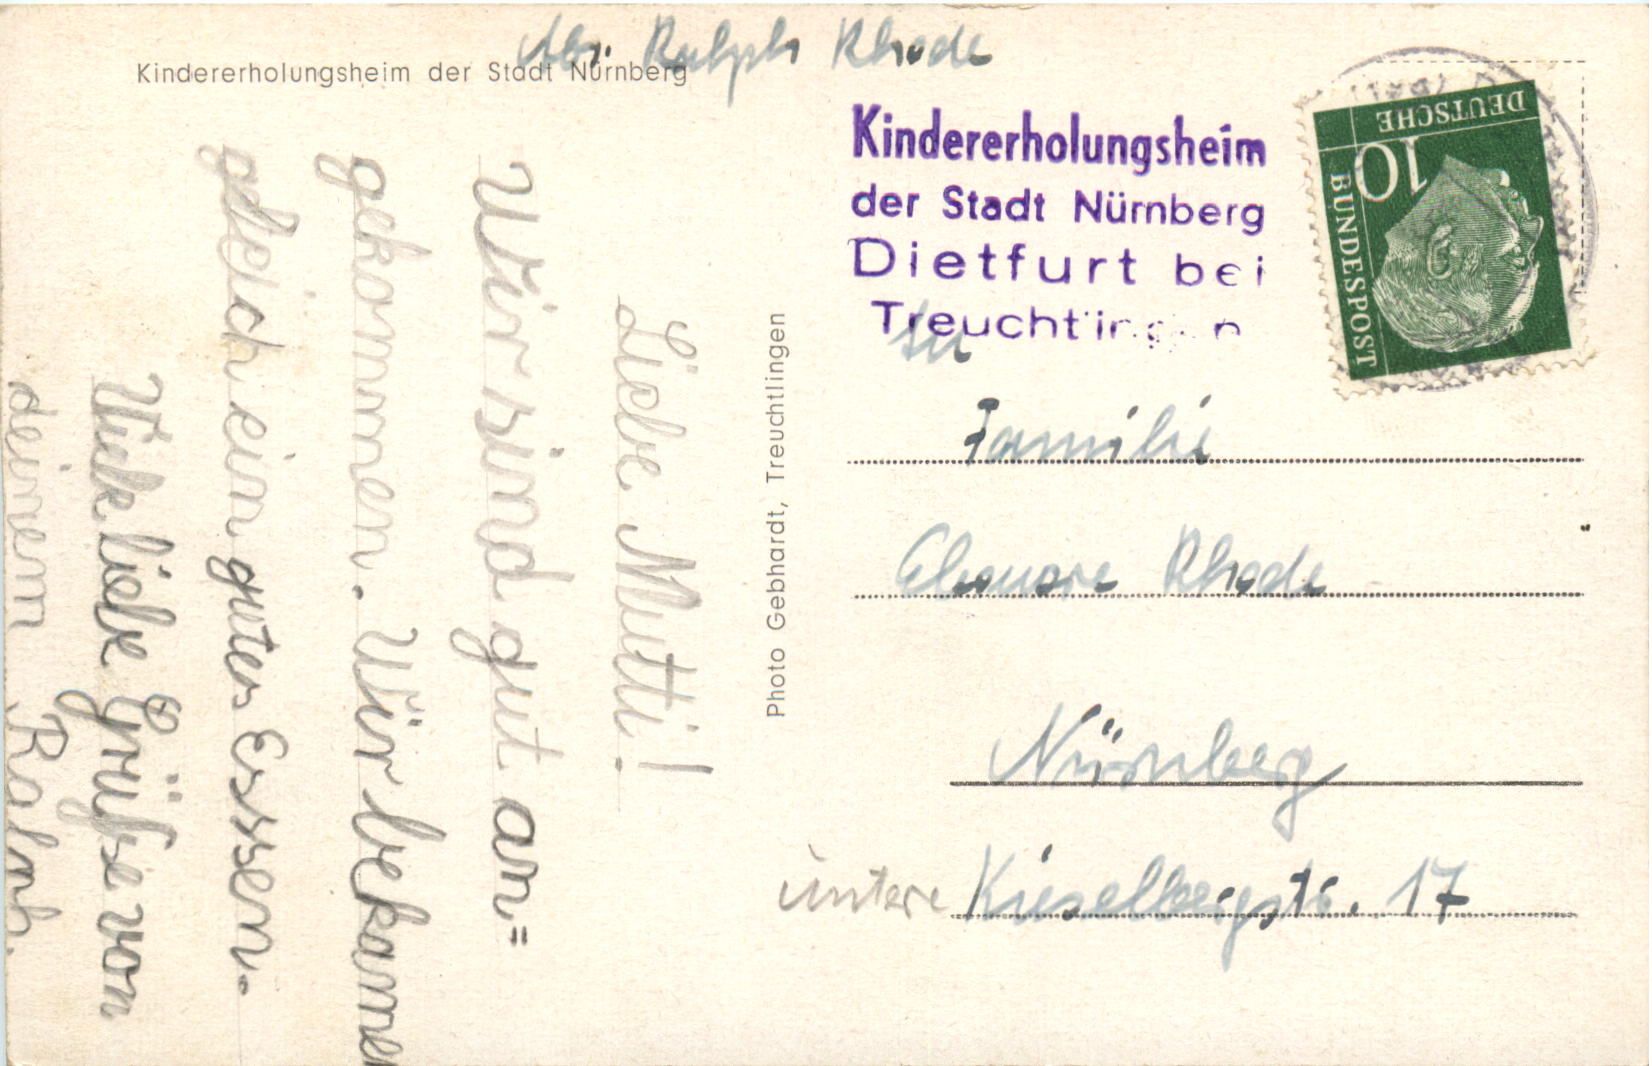 Kindererholungsheim der Stadt Nürnberg
Abs. Ralph Rhode
Kindererholungsheim
der Stadt Nürnberg
Dietfurt bei
Treuchtlingen
DEUTSCHE
BUNDESPOST
10
An
Familie
Eleonore Rhode
Nürnberg
untere Kieselbergstr. 17
Photo Gebhardt, Treuchtlingen
Liebe Mutti!
Wir sind gut an=
gekommen. Wir bekamen
gleich ein gutes Essen.
Viele liebe Grüße von
deinem Ralph.